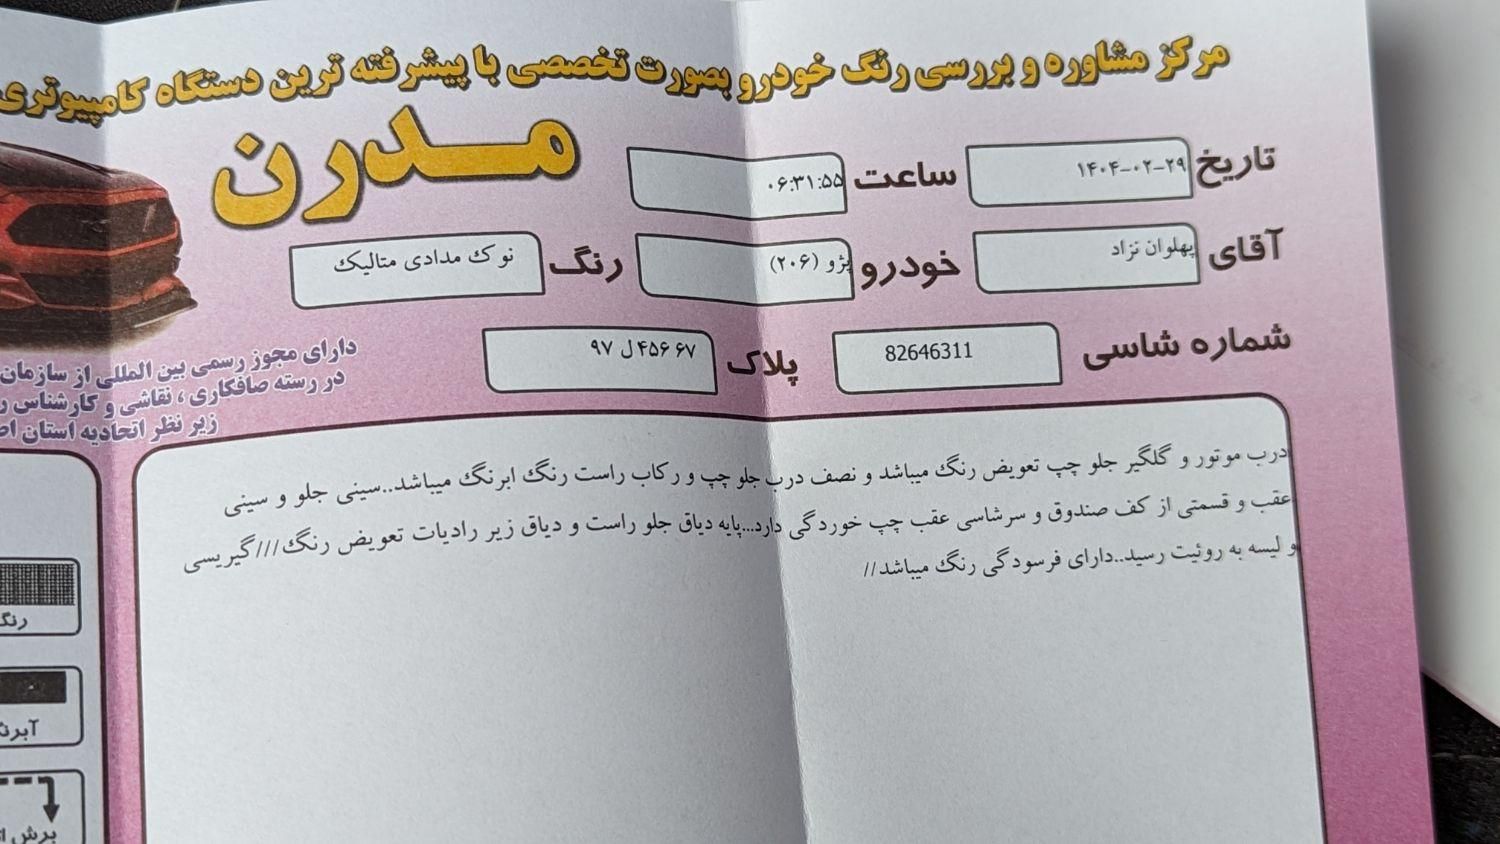 مرکز مشاوره و بررسی رنگ خودرو بصورت تخصصی با پیشرفته ترین دستگاه کامپیوتری
مــدرن
تاریخ ۱۴۰۴-۰۲-۲۹ ساعت ۰۶:۳۱:۵۵
آقای پهلوان نژاد خودرو پژو (۲۰۶) رنگ نوک مدادی متالیک
شماره شاسی 82646311 پلاک ۶۷ ۴۵۶ ل ۹۷
دارای مجوز رسمی بین المللی از سازمان
در رسته صافکاری ، نقاشی و کارشناس
زیر نظر اتحادیه استان
درب موتور و گلگیر جلو چپ تعویض رنگ میباشد و نصف درب جلو چپ و رکاب راست رنگ ابرنگ میباشد..سینی جلو و سینی
عقب و قسمتی از کف صندوق و سرشاسی عقب چپ خوردگی دارد...پایه دیاق جلو راست و دیاق زیر رادیات تعویض رنگ///گیریسی
و لیسه به روئیت رسید..دارای فرسودگی رنگ میباشد//
رنگ
برش